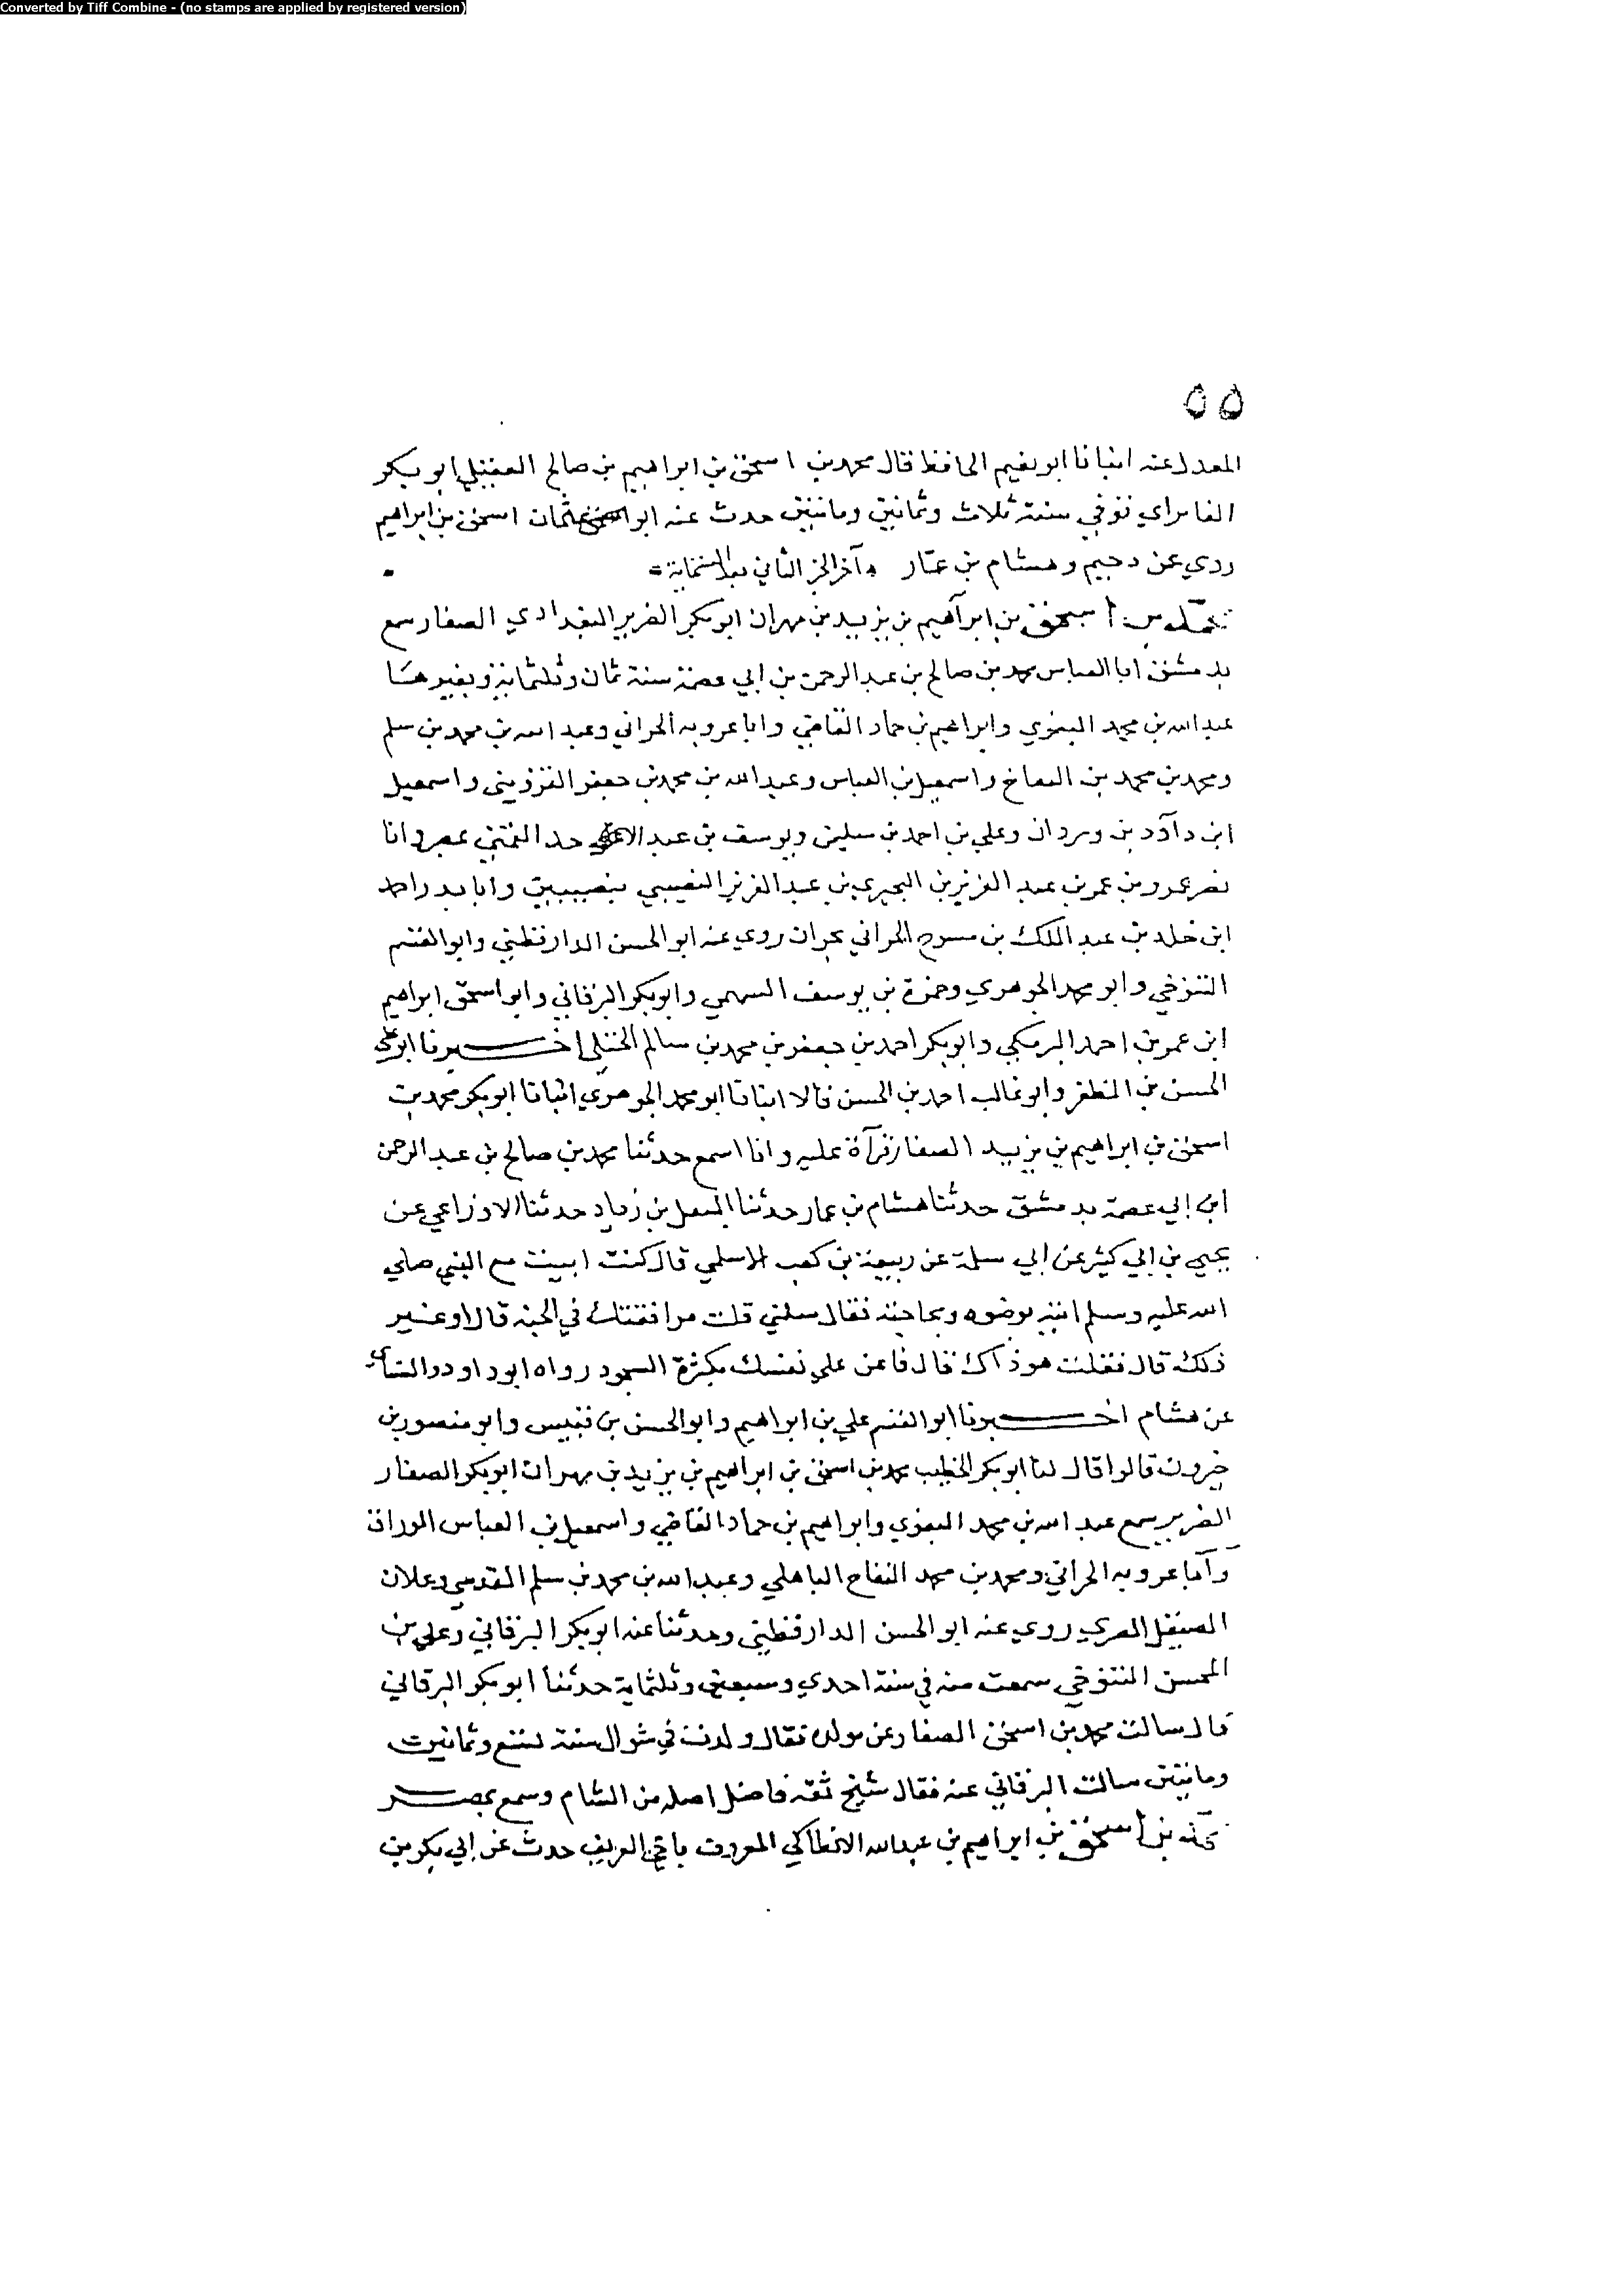 Converted by Tiff Combine - (no stamps are applied by registered version)
٥٥
المعدل عنه انبانا ابو نعيم الحافظ قال محمد بن اسحق بن ابراهيم بن صالح العقيلي ابو بكر
الفابراي توفي سنة ثلاث وثمانين ومائتين حدث عنه ابو عثمان اسحق بن ابراهيم
روي عن دحيم وهشام بن عمار آخر الجز الثاني بعد الستماية
محمد بن اسحق بن ابراهيم بن يزيد بن مهران ابو بكر الضرير البغدادي الصفار سمع
بدمشق ابا العباس محمد بن صالح بن عبد الرحمن بن ابي عصمة سنة ثمان وثلثماية وبغيرها
عبد الله بن محمد البغوي وابراهيم بن حماد القاضي وابا عروبه الحراني وعبد الله بن محمد بن سلم
ومحمد بن محمد بن النفاخ واسمعيل بن العباس وعبد الله بن محمد بن جعفر القزويني واسمعيل
ابن داود بن وردان وعلي بن احمد بن سليمن ويوسف بن عبد الاحد القمني بمصر وانا
نصر عمرو بن عمر بن عبد العزيز بن البحيري بن عبد العزيز النصيبي بنصيبين وابا بدر احمد
ابن خلد بن عبد الملك بن مسرح الحراني بحران روي عنه ابو الحسن الدارقطني وابو القسم
التنوخي وابو محمد الجوهري وحمزة بن يوسف السهمي وابو بكر البرقاني وابو اسحق ابراهيم
ابن عمر بن احمد البرمكي وابو بكر احمد بن جعفر بن محمد بن سالم الختلي اخبرنا ابو علي
الحسن بن المظفر وابو غالب احمد بن الحسن قالا انبانا ابو محمد الجوهري انبانا ابو بكر محمد بن
اسحق بن ابراهيم بن يزيد الصفار قرآة عليه وانا اسمع حدثنا محمد بن صالح بن عبد الرحمن
ابن ابي عصمة بدمشق حدثنا هشام بن عمار حدثنا الهقل بن زياد حدثنا الاوزاعي عن
يحيي بن ابي كثير عن ابي سلمة عن ربيعة بن كعب الاسلمي قال كنت ابيت مع النبي صلي
الله عليه وسلم اتيه بوضوه وبحاجته فقال سلني قلت مرافقتك في الجنه قال او غير
ذلك قال فقلت هو ذاك قال فاعن علي نفسك بكثرة السجود رواه ابو داود والنساي
عن هشام اخبرنا ابو القسم علي بن ابراهيم وابو الحسن بن قبيس وابو منصور بن
خيرون قالوا قال لنا ابو بكر الخطيب محمد بن اسحق بن ابراهيم بن يزيد بن مهران ابو بكر الصفار
الضرير سمع عبد الله بن محمد البغوي وابراهيم بن حماد القاضي واسمعيل بن العباس الوراق
وابا عروبه الحراني ومحمد بن محمد النفاح الباهلي وعبد الله بن محمد بن سلم المقدسي وعلان
الصيقل المصري روي عنه ابو الحسن الدارقطني وحدثنا عنه ابو بكر البرقاني وعلي بن
المحسن التنوخي سمعت منه في سنة احدي وسبعين وثلثماية حدثنا ابو بكر البرقاني
قال سالت محمد بن اسحق الصفار عن مولده فقال ولدت في شوال سنة تسع وثمانين
ومايتين سالت البرقاني عنه فقال شيخ ثقه فاضل اصله من الشام وسمع بمصر
محمد بن اسحق بن ابراهيم بن عبد الله الانطاكي المعروف العريف حدث عن ابي بكر بن